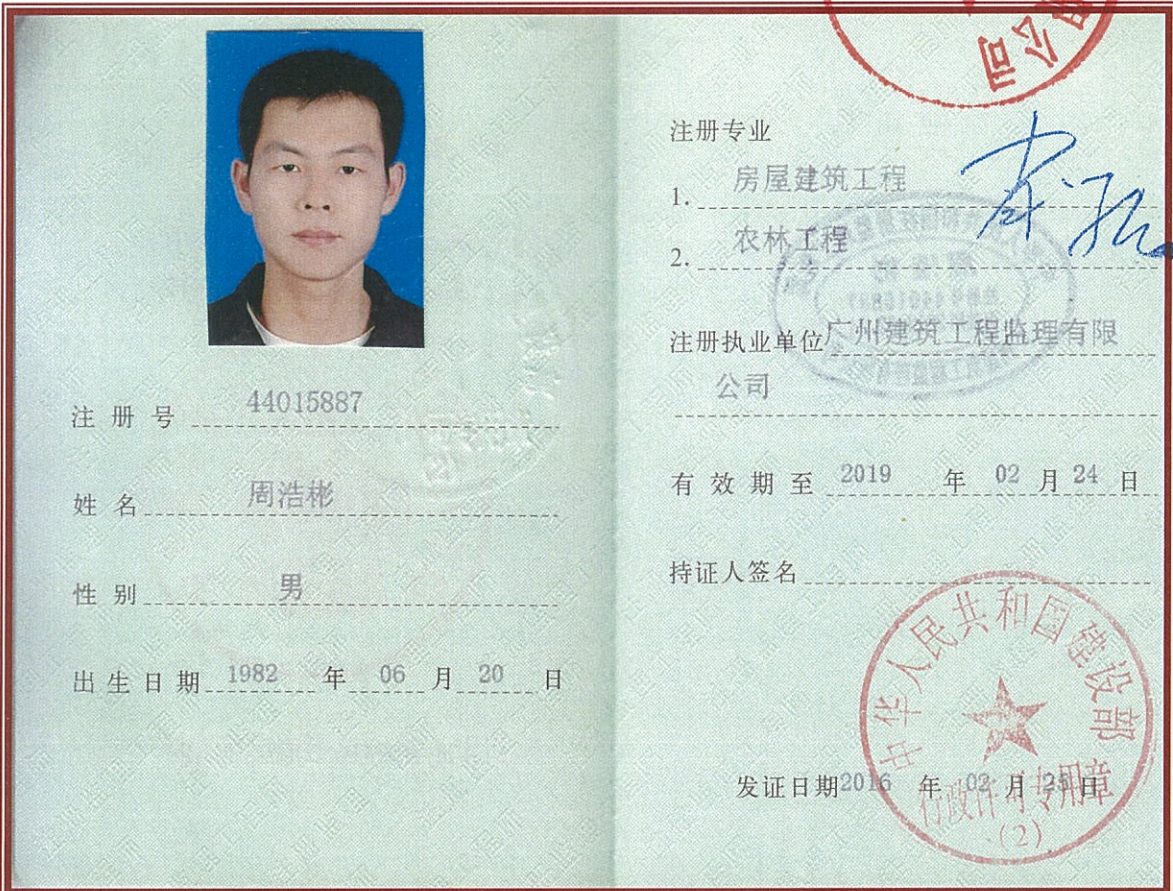 注册号 44015887
姓名 周浩彬
性别 男
出生日期 1982 年 06 月 20 日
公司
注册专业
1. 房屋建筑工程
2. 农林工程
注册执业单位 广州建筑工程监理有限
公司
有效期至 2019 年 02 月 24 日
持证人签名
中华人民共和国建设部
发证日期 2016 年 02 月 25 日
行政许可专用章
(2)